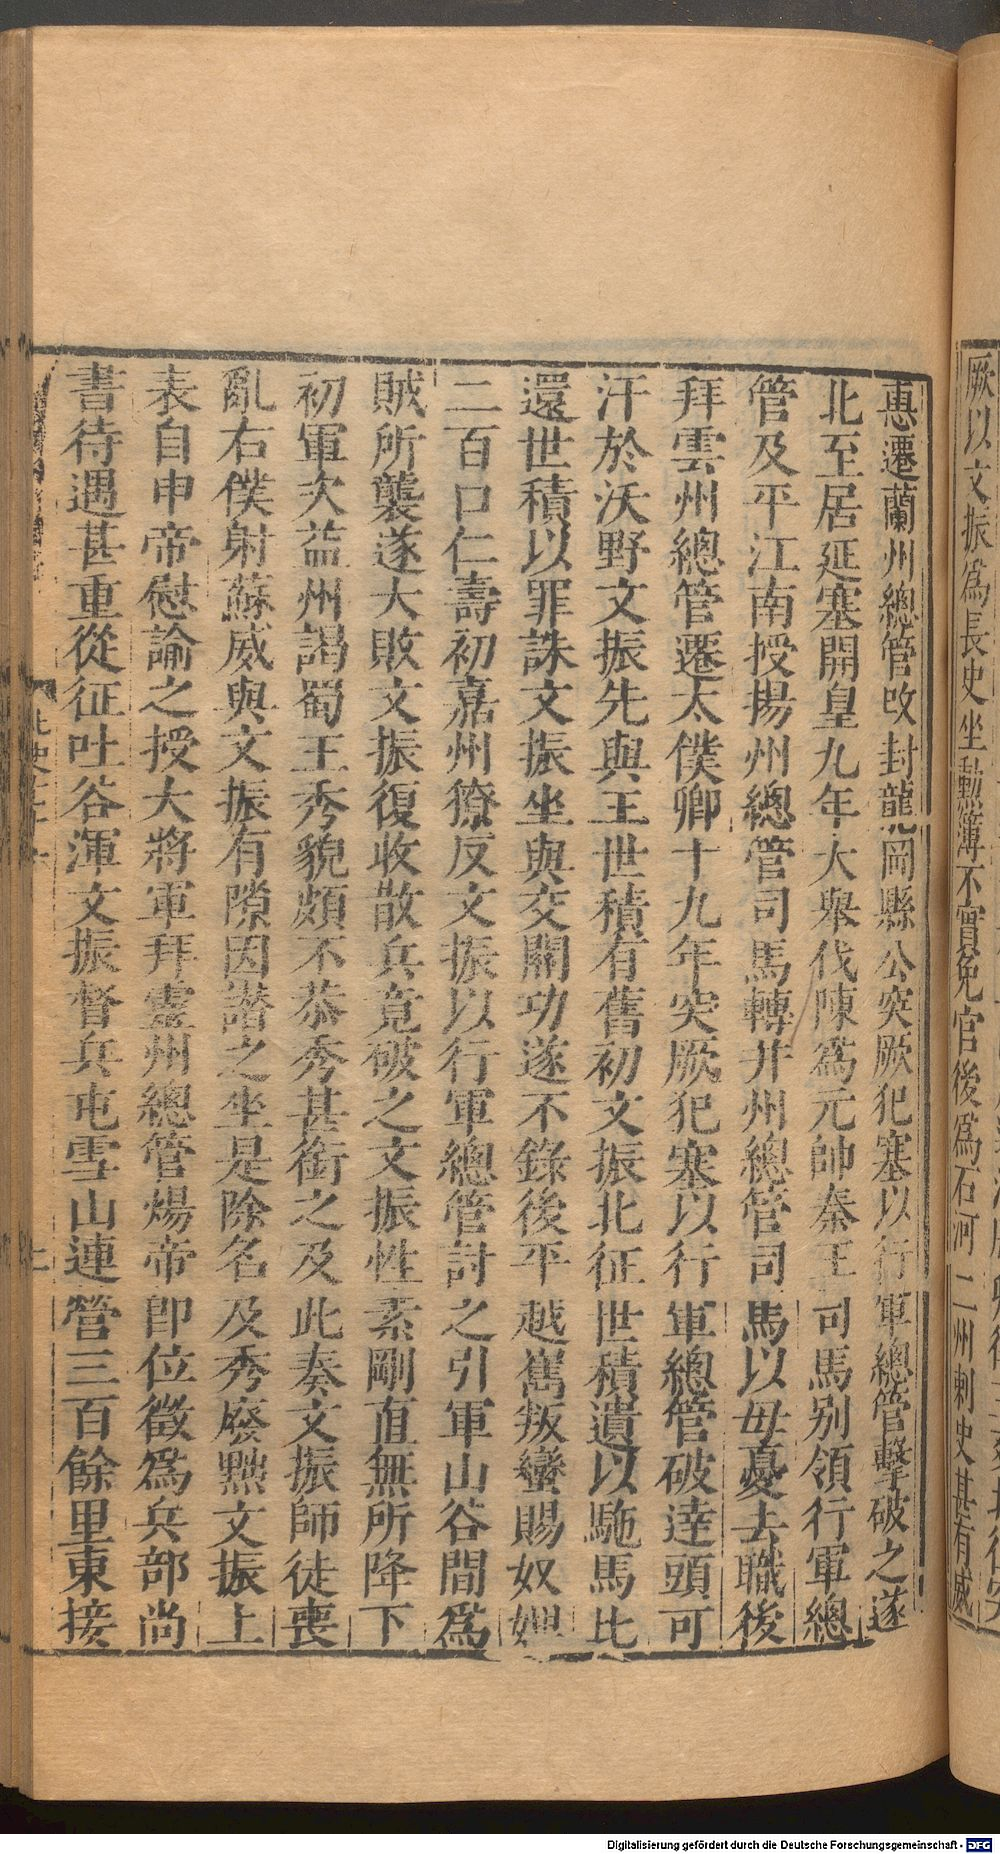 厥以文振爲長史坐勳簿不實免官後爲石河二州刺史甚有威
惠遷蘭州總管改封龍岡縣公突厥犯塞以行軍總管擊破之遂
北至居延塞開皇九年大舉伐陳爲元帥秦王司馬别領行軍總
管及平江南授揚州總管司馬轉并州總管司馬以母憂去職後
拜雲州總管遷太僕卿十九年突厥犯塞以行軍總管破達頭可
汗於沃野文振先與王世積有舊初文振北征世積遺以駞馬比
還世積以罪誅文振坐與交關功遂不錄後平越嶲叛蠻賜奴婢
二百口仁壽初嘉州獠反文振以行軍總管討之引軍山谷間爲
賊所襲遂大敗文振復收散兵竟破之文振性素剛直無所降下
初軍次益州謁蜀王秀貌頗不恭秀甚銜之及此奏文振師徒喪
亂右僕射蘇威與文振有隙因譖之坐是除名及秀廢黜文振上
表自申帝慰諭之授大將軍拜靈州總管煬帝卽位徵爲兵部尚
書待遇甚重從征吐谷渾文振督兵屯雪山連營三百餘里東接
Digitalisierung gefördert durch die Deutsche Forschungsgemeinschaft - DFG